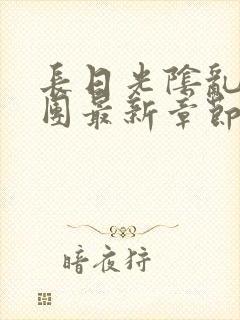 長日光陰亂
團最新章節
暗夜狩